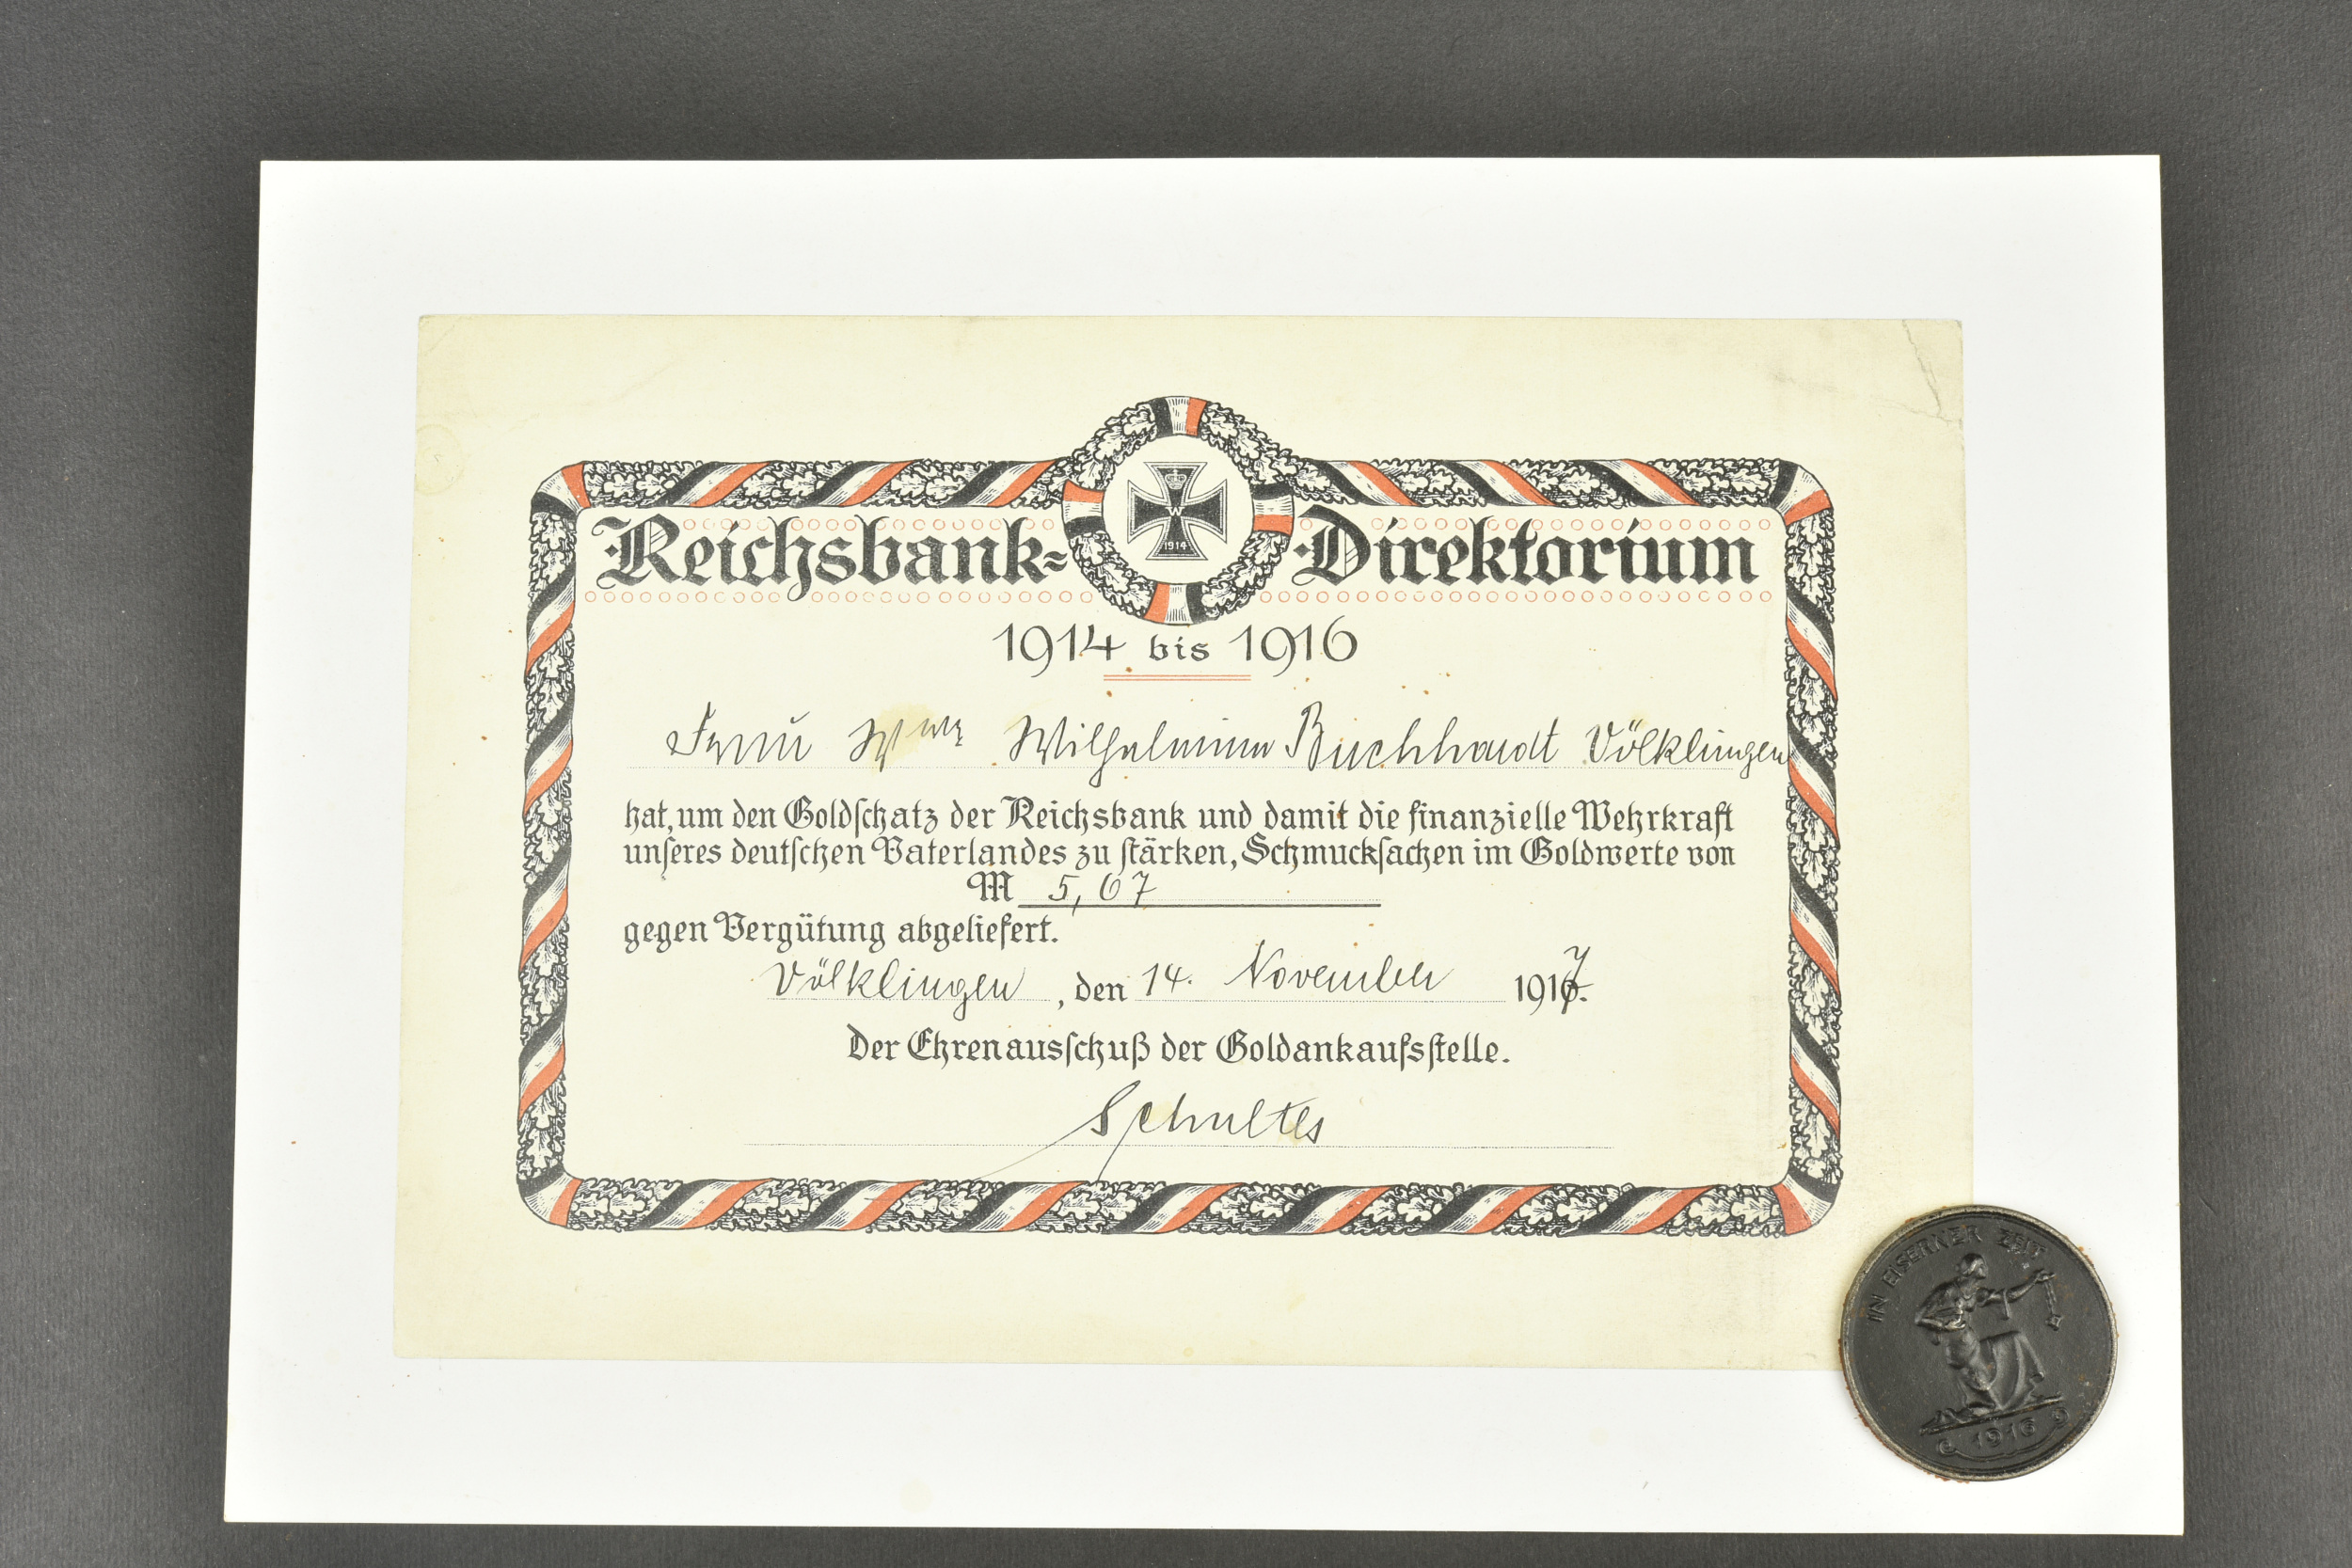 Reichsbank= Direktorium
W
1914
1914 bis 1916
Frau Wwe Wilhelmine Buchhardt Völklingen
hat, um den Goldſchatz der Reichsbank und damit die finanzielle Wehrkraft
unſeres deutſchen Vaterlandes zu ſtärken, Schmuckſachen im Goldwerte von
M 5,67
gegen Vergütung abgeliefert.
Völklingen, den 14. November 1917.
Der Ehrenausſchuß der Goldankaufsſtelle.
Schultes
IN EISERNER ZEIT
1916